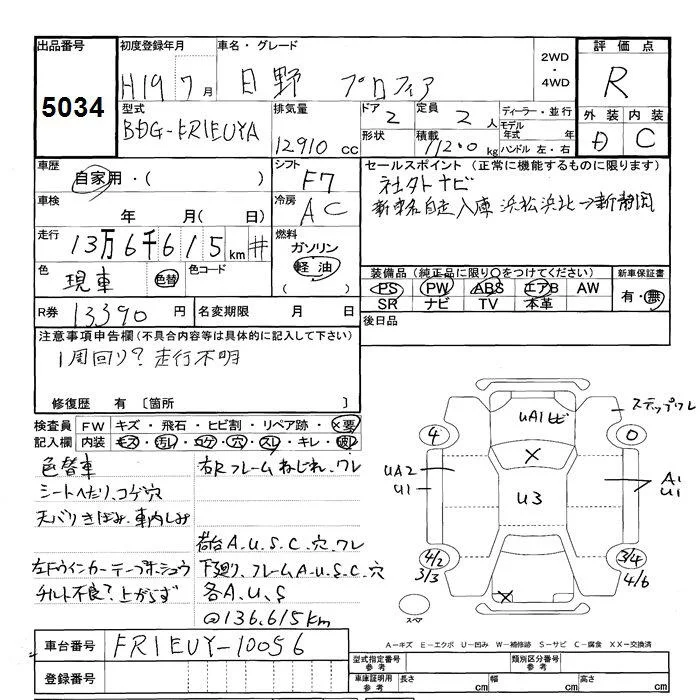 出品番号 初度登録年月 車名・グレード 2WD・4WD 評価点
5034 H19 7月 日野 プロフィア R
型式 排気量 ドア 定員 ディーラー・並行 外装 内装
BDG-FR1EUYA 12910cc 2 2人 モデル年式 年 D C
形状 積載 11200kg ハンドル 左・右
車歴 シフト セールスポイント (正常に機能するものに限ります)
自家用・( ) F7 社外ナビ
車検 冷房 自走入庫 浜松浜北→新静岡
年 月( 日) AC
走行 燃料
13万6千615km # ガソリン
色 色コード 軽油 装備品 (純正品に限り○をつけてください) 新車保証書
現車 色替 ( ) PS PW ABS エアB AW 有・無
SR ナビ TV 本革
R券 13390円 名変期限 月 日 後日品
注意事項申告欄(不具合内容等は具体的に記入して下さい)
1周回り?走行不明
修復歴 有 [箇所 ]
検査員 FW キズ・飛石・ヒビ割・リペア跡・×要
記入欄 内装 キズ・汚レ・コゲ・穴・スレ・キレ・破レ
色替車 右Rフレームねじれ、ワレ
シートへたり、コゲ穴
天バリきばみ、車内しみ
荷台A.U.S.C.穴.ワレ
左Fウインカーテープホシュウ 下廻り、フレームA-U.S.C.穴
チルト不良?上がらず 各A.U.S
@136.615km
UA1ヒビ ステップワレ
4 0
X
UA2 A1
U1 U3 U1
4/2 3/4
3/3 4/6
X
スペア
A-キズ E-エクボ U-凹み W-補修跡 S-サビ C-腐食 XX-交換済
車台番号 FR1EUY-10056
登録番号
型式指定番号 参考 類別区分番号 参考
車庫証明用 参考 長さ cm 幅 cm 高さ cm